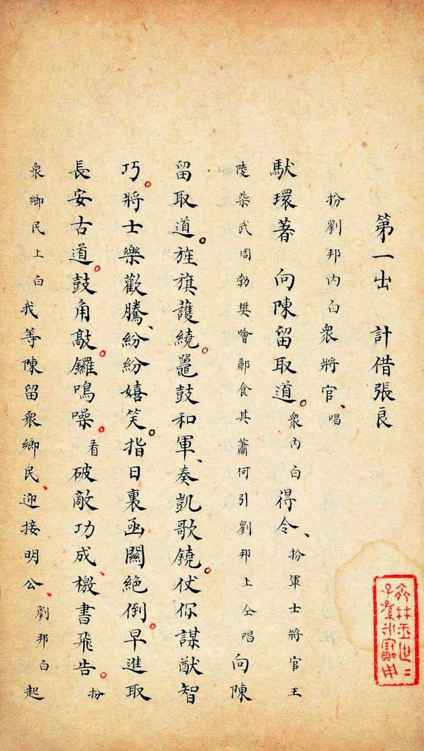 第一出　計借張良
扮劉邦內白衆將官唱
馱環著　向陳留取道衆內白得令扮軍士將官王
陵柴武周勃樊噲酈食其蕭何引劉邦上仝唱向陳
留取道旌旗護繞鼉鼓和軍奏凱歌鐃仗你謀猷智
巧將士樂歡騰紛紛嬉笑指日裏函關絶倒早進取
長安古道鼓角敲鑼鳴噪看破敵功成檄書飛告扮
衆鄉民上白我等陳留衆鄉民迎接明公劉邦白起